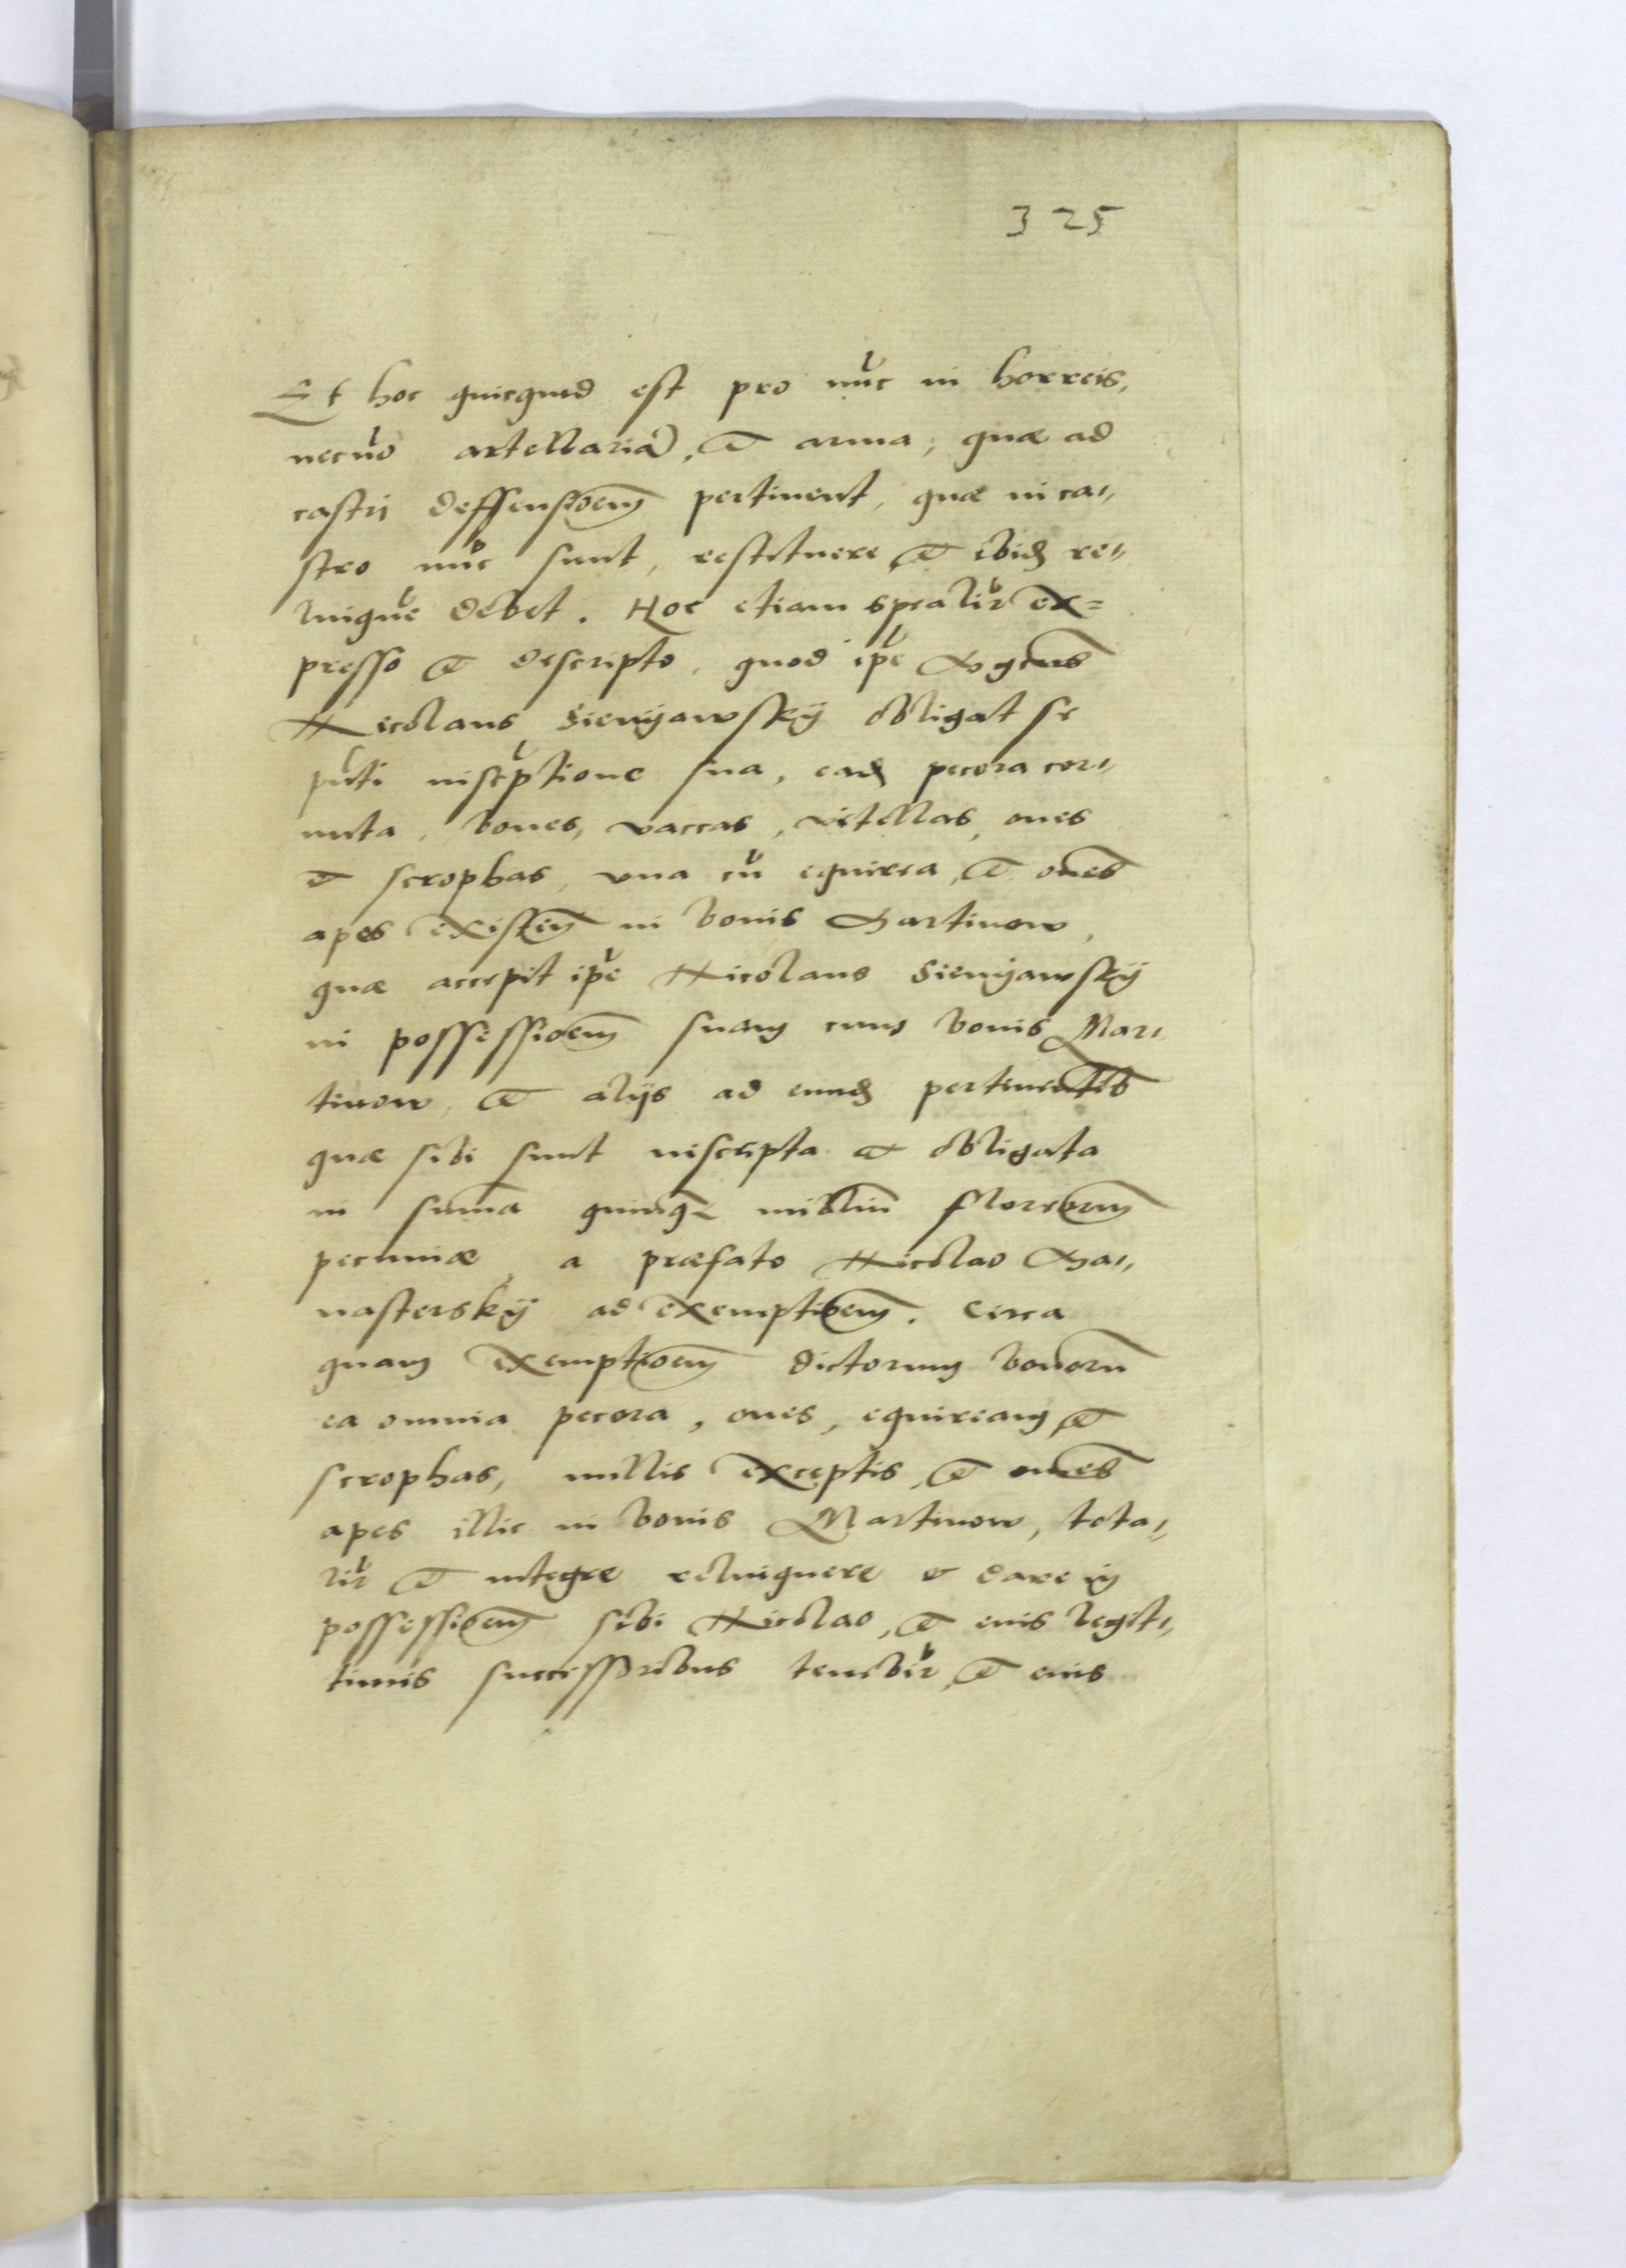 325
Et hoc quicquid est pro nuc in horreis,
necno artellaria, et arma, quæ ad
castri deffensioem pertinent, quæ in ca,,
stro nuc sunt, restituere et ibid re,,
linque debet. Hoc etiam spealir ex=
presso et descripto, quod ipe Mgcus
Nicolaus Sienyawskÿ obligat se
pnti inscptione sua, ead pecora cor,,
nuta, boues, vaccas, vitellas, oues
et scrophas, vna cu equirea, et oues
apes existen in bonis Martinow,
quæ accepit ipe Nicolaus Sienyawskÿ
in possessioem suam cum bonis Mar,,
tinow, et alijs ad eund pertinentes
quæ sibi sunt inscripta et obligata
in suma quinq milliu florenorum
pecuniæ, a præfato Nicolao Ma,,
nasterskÿ ad exemptioem. Circa
quam exemptioem dictorum bonoru
ea omnia pecora, oues, equiream et
scrophas, nullis exceptis, et omes
apes illic in bonis Martinow, tota,,
lir et integre relinquere et dare in
possessioem sibi Nicolao, et euis legit,,
timis successoribus tenebir, et euis